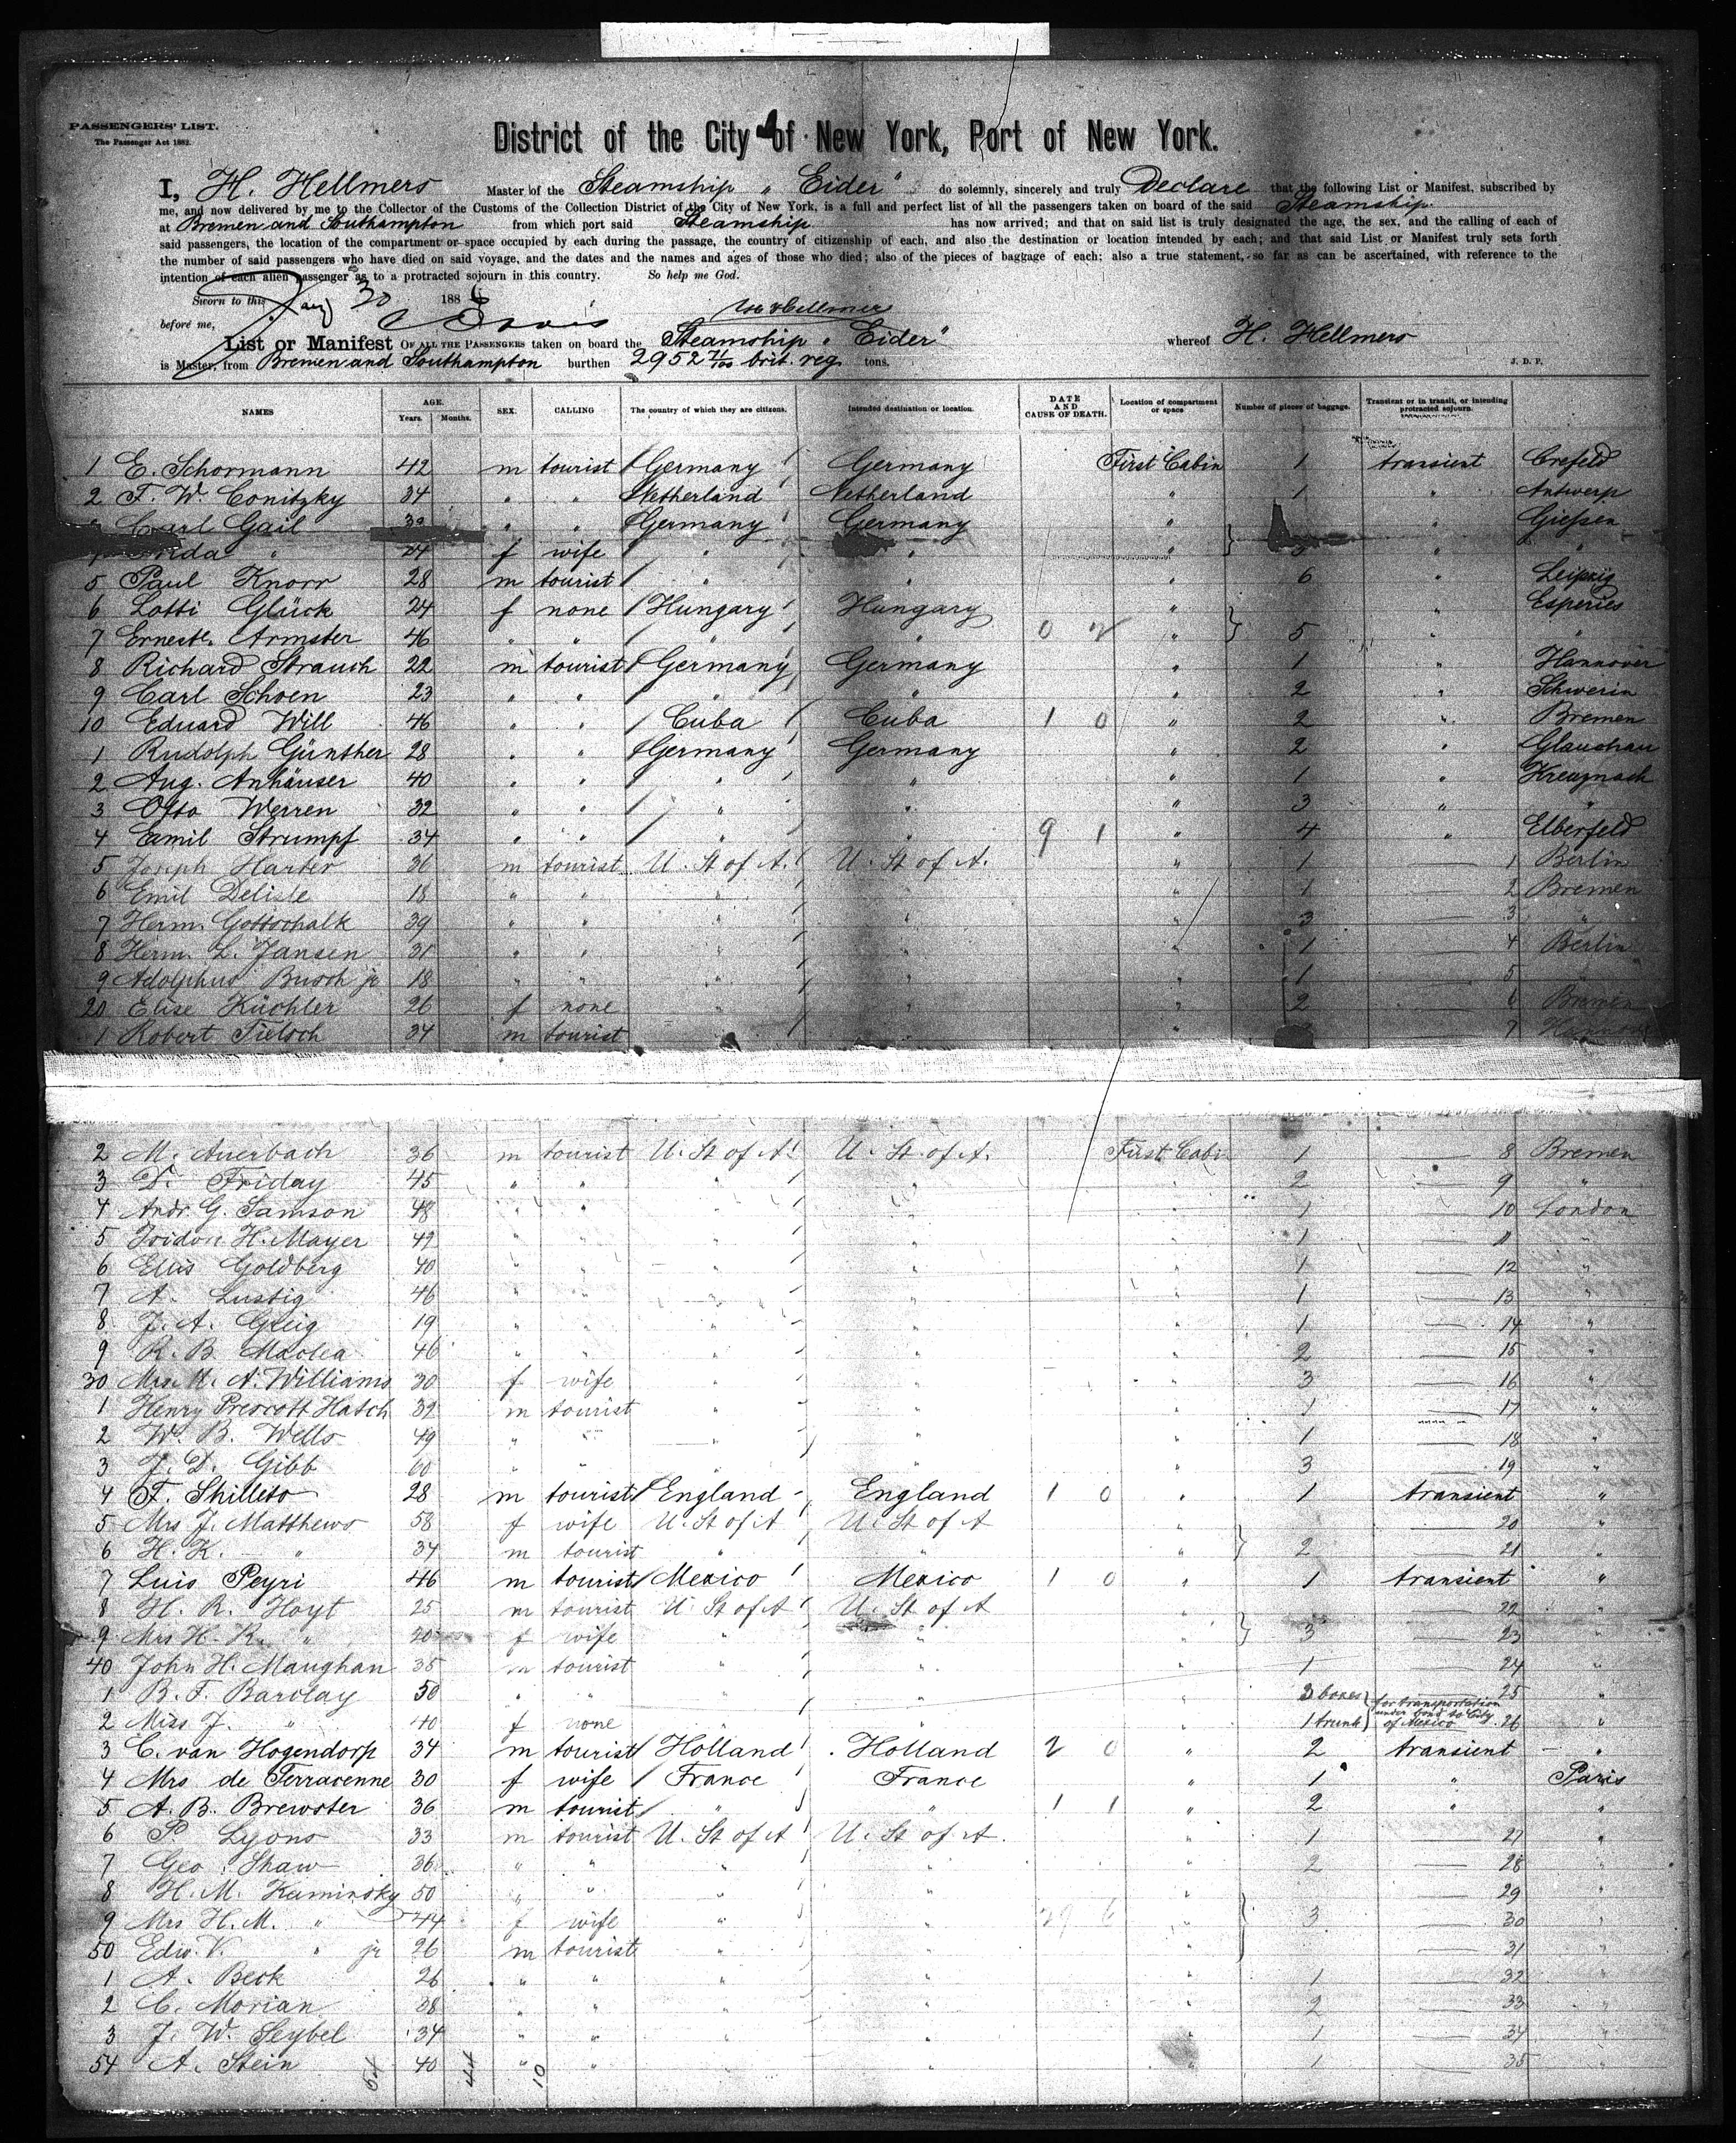 PASSENGERS' LIST.
The Passenger Act 1882.
District of the City of New York, Port of New York.
I, H. Hellmers Master of the Steamship "Eider" do solemnly, sincerely and truly Declare that the following List or Manifest, subscribed by
me, and now delivered by me to the Collector of the Customs of the Collection District of the City of New York, is a full and perfect list of all the passengers taken on board of the said Steamship
at Bremen and Southampton from which port said Steamship has now arrived; and that on said list is truly designated the age, the sex, and the calling of each of
said passengers, the location of the compartment or space occupied by each during the passage, the country of citizenship of each, and also the destination or location intended by each; and that said List or Manifest truly sets forth
the number of said passengers who have died on said voyage, and the dates and the names and ages of those who died; also of the pieces of baggage of each; also a true statement, so far as can be ascertained, with reference to the
intention of each alien passenger as to a protracted sojourn in this country. So help me God.
Sworn to this 30 188
before me, H. Hellmers
List or Manifest OF ALL THE PASSENGERS taken on board the Steamship "Eider" whereof H. Hellmers
is Master, from Bremen and Southampton burthen 2952 71/100 brit. reg. tons. J. D. P.
NAMES AGE. Years. Months. SEX. CALLING The country of which they are citizens. Intended destination or location. DATE AND CAUSE OF DEATH. Location of compartment or space Number of pieces of baggage. Transient or in transit, or intending protracted sojourn.
1 E. Schormann 42 m tourist Germany Germany First Cabin 1 transient Crefeld
2 F. W. Conitzky 34 " " Netherland Netherland " 1 " Antwerp
Carl Gail " " Germany Germany " " Gießen
" 24 f wife " " " " "
5 Paul Knorr 28 m tourist " " " 6 " Leipzig
6 Lotti Glück 24 f none Hungary Hungary " " Esperies
7 Erneste. Armster 46 " " " " 0 2 " 5 " "
8 Richard Strauch 22 m tourist Germany Germany " 1 " Hannover
9 Carl Schoen 23 " " " " " 2 " Schwerin
10 Eduard Will 46 " " Cuba Cuba 1 0 " 2 " Bremen
1 Rudolph Günther 28 " " Germany Germany " 2 " Glauchau
2 Aug. Anhäuser 40 " " " " " 1 " Kreuznach
3 Otto Werren 32 " " " " " 3 " "
4 Emil Strumpf 34 " " " " 9 1 " 4 " Elberfeld
5 Joseph Harter 36 m tourist U. St of A. U. St of A. " 1 1 Berlin
6 Emil Delisle 18 " " " " " 1 2 Bremen
7 Herm. Gottschalk 39 " " " " " 3 3 "
8 Herm. L. Jansen 31 " " " " " 1 4 Berlin
9 Adolphus Busch jr 18 " " " " " 1 5 "
20 Elise Küchler 26 f none " " " 2 6 Bremen
1 Robert Tielsch 34 m tourist " 7
2 M. Auerbach 36 m tourist U. St of A. U. St. of A. First Cabin 1 8 Bremen
3 D. Friday 45 " " " " " 2 9 "
4 Andr. G. Samson 48 " " " " " 1 10 London
5 Isidor H. Mayer 42 " " " " " 1 11 "
6 Ellis Goldberg 40 " " " " " 1 12 "
7 A. Lustig 46 " " " " " 1 13 "
8 J. A. Greig 19 " " " " " 1 14 "
9 R. B. 46 " " " " " 2 15 "
30 Mrs. M. A. Williams 30 f wife " " " 3 16 "
1 Henry Prescott Hatch 39 m tourist " " " 1 17 "
2 W. B. Wells 49 " " " " " 1 18 "
3 J. D. Gibb 60 " " " " " 3 19 "
4 F. Shilleto 28 m tourist England England 1 0 " 1 transient "
5 Mrs J. Matthews 58 f wife U. St of A U. St of A " 20 "
6 H. K. " 34 m tourist " " " 2 21 "
7 Luis Peyri 46 m tourist Mexico Mexico 1 0 " 1 transient "
8 H. R. Hoyt 25 m tourist U. St of A U. St of A " 22 "
9 Mrs H. R. " 20 f wife " " " 3 23 "
40 John H. Maughan 35 m tourist " " " 1 24 "
1 B. F. Barclay 50 " " " " " 3 boxes for transportation 25 "
2 Miss J. " 40 f none " " " 1 trunk under bond to City of Mexico 26 "
3 C. van Hogendorp 34 m tourist Holland Holland 2 0 " 2 transient "
4 Mrs de Terracenne 30 f wife France France " 1 " Paris
5 A. B. Brewster 36 m tourist " " 1 1 " 2 " "
6 P. Lyons 33 m tourist U. St of A U. St of A. " 1 27 "
7 Geo. Shaw 36 " " " " " 2 28 "
8 H. M. Kaminsky 50 " " " " " 29 "
9 Mrs H. M. " 44 f wife " " 29 6 " 3 30 "
50 Edw. V. " jr 26 m tourist " " " 31 "
1 A. Beck 26 " " " " " 1 32 "
2 C. Morian 38 " " " " " 2 33 "
3 J. W. Seybel 34 " " " " " 1 34 "
54 A. Stein 40 " " " " " 1 35 "
54 44 10